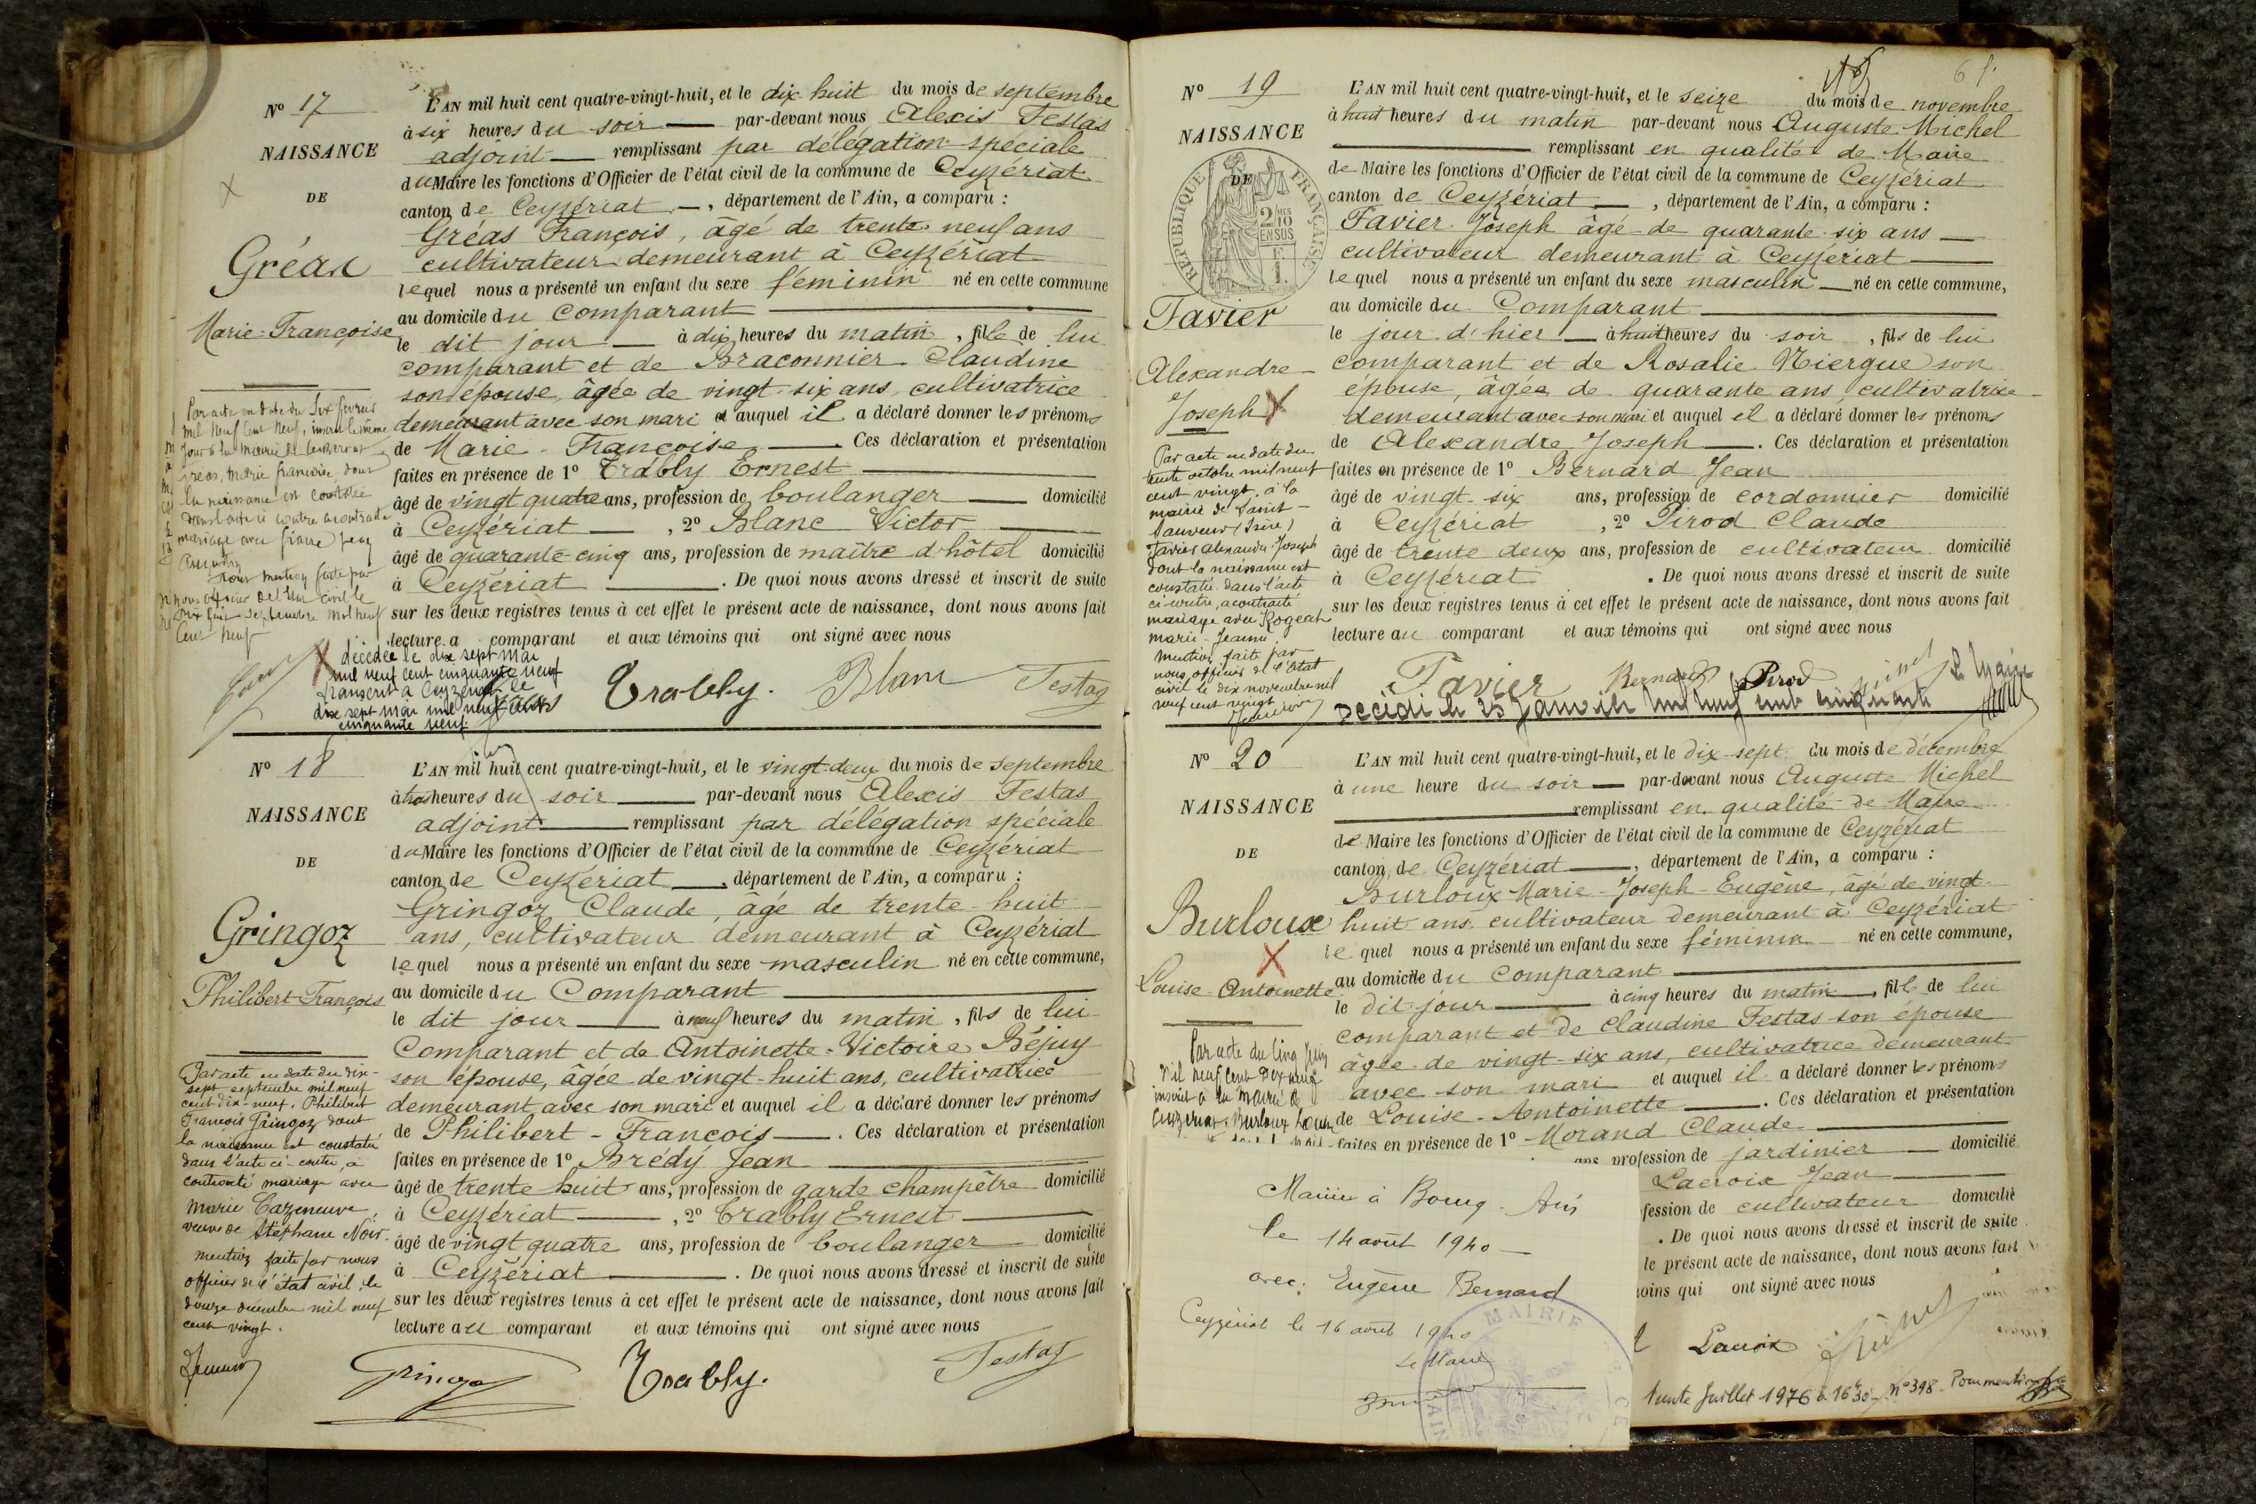 Nº 17
NAISSANCE
DE
Gréas
Marie-Françoise
L'AN mil huit cent quatre-vingt-huit, et le dix huit du mois de septembre
à six heures du soir par-devant nous Alexis Festas
adjoint remplissant par délégation spéciale
du Maire les fonctions d'Officier de l'état civil de la commune de Ceyzériat
canton de Ceyzériat, département de l'Ain, a comparu :
Gréas François, âgé de trente neuf ans
cultivateur demeurant à Ceyzériat
lequel nous a présenté un enfant du sexe féminin né en cette commune
au domicile du comparant
le dit jour à dix heures du matin, fille de lui
comparant et de Braconnier Claudine
son épouse, âgée de vingt-six ans, cultivatrice
demeurant avec son mari et auquel il a déclaré donner les prénoms
de Marie-Françoise. Ces déclaration et présentation
faites en présence de 1º Trably Ernest
âgé de vingt quatre ans, profession de boulanger domicilié
à Ceyzériat, 2º Blanc Victor
âgé de quarante-cinq ans, profession de maître d'hôtel domicilié
à Ceyzériat. De quoi nous avons dressé et inscrit de suite
sur les deux registres tenus à cet effet le présent acte de naissance, dont nous avons fait
lecture a comparant et aux témoins qui ont signé avec nous
Par acte en date du Six février
mil neuf cent neuf, inscrit le même
jour à la mairie de Ceyzériat
Gréas, Marie françoise, dont
la naissance est constatée
dans l'acte ci contre a contracté
mariage avec
Pour mention faite par
nous officier de l'état civil le
Dix huit Septembre mil neuf
Cent neuf
décédée le dix sept mai
mil neuf cent cinquante neuf
transcrit à Ceyzériat le
dix sept mai mil neuf cent
cinquante neuf.
Gréas Trably. Blanc Festas
Nº 18
NAISSANCE
DE
Gringoz
Philibert François
L'AN mil huit cent quatre-vingt-huit, et le vingt-deux du mois de septembre
à trois heures du soir par-devant nous Alexis Festas
adjoint remplissant par délégation spéciale
du Maire les fonctions d'Officier de l'état civil de la commune de Ceyzériat
canton de Ceyzériat, département de l'Ain, a comparu :
Gringoz Claude, âgé de trente-huit
ans, cultivateur demeurant à Ceyzériat
lequel nous a présenté un enfant du sexe masculin né en cette commune,
au domicile du Comparant
le dit jour à neuf heures du matin, fils de lui
Comparant et de Antoinette-Victoire Béjuy
son épouse, âgée de vingt-huit ans, cultivatrice
demeurant avec son mari et auquel il a déclaré donner les prénoms
de Philibert-François. Ces déclaration et présentation
faites en présence de 1º Brédy Jean
âgé de trente huit ans, profession de garde champêtre domicilié
à Ceyzériat, 2º Trably Ernest
âgé de vingt quatre ans, profession de boulanger domicilié
à Ceyzériat. De quoi nous avons dressé et inscrit de suite
sur les deux registres tenus à cet effet le présent acte de naissance, dont nous avons fait
lecture au comparant et aux témoins qui ont signé avec nous
Par acte en date du dix-
sept septembre mil neuf
cent dix-neuf, Philibert
François Gringoz dont
la naissance est constatée
dans l'acte ci-contre, a
contracté mariage avec
Marie Cazeneuve,
veuve de Stéphane Noir.
mention faite par nous
officier de l'état civil, le
douze décembre mil neuf
cent vingt.
Gringoz Trably. Festas
61
Nº 19
NAISSANCE
DE
RÉPUBLIQUE FRANÇAISE
2/10 EN SUS
Favier
Alexandre
Joseph
L'AN mil huit cent quatre-vingt-huit, et le seize du mois de novembre
à huit heures du matin par-devant nous Auguste Michel
remplissant en qualité de Maire
de Maire les fonctions d'Officier de l'état civil de la commune de Ceyzériat
canton de Ceyzériat, département de l'Ain, a comparu :
Favier Joseph âgé de quarante-six ans
cultivateur demeurant à Ceyzériat
lequel nous a présenté un enfant du sexe masculin né en cette commune,
au domicile du Comparant
le jour d'hier à huit heures du soir, fils de lui
comparant et de Rosalie Niergue son
épouse, âgée de quarante ans, cultivatrice
demeurant avec son mari et auquel il a déclaré donner les prénoms
de Alexandre Joseph. Ces déclaration et présentation
faites en présence de 1º Bernard Jean
âgé de vingt-six ans, profession de cordonnier domicilié
à Ceyzériat, 2º Pirod Claude
âgé de trente deux ans, profession de cultivateur domicilié
à Ceyzériat. De quoi nous avons dressé et inscrit de suite
sur les deux registres tenus à cet effet le présent acte de naissance, dont nous avons fait
lecture au comparant et aux témoins qui ont signé avec nous
Par acte en date du
trente octobre mil neuf
cent vingt, à la
mairie de Saint-
Sauveur (Isère)
Favier Alexandre Joseph
dont la naissance est
constatée dans l'acte
ci-contre, a contracté
mariage avec Rogeat
Marie-Jeanne
mention faite par
nous, officier de l'état
civil le dix novembre mil
neuf cent vingt
Favier Bernard Pirod
Décédé le 25 Janvier mil neuf cent cinquante le Maire
Nº 20
NAISSANCE
DE
Burloux
Louise-Antoinette
L'AN mil huit cent quatre-vingt-huit, et le dix-sept du mois de décembre
à une heure du soir par-devant nous Auguste Michel
remplissant en qualité de Maire
de Maire les fonctions d'Officier de l'état civil de la commune de Ceyzériat
canton de Ceyzériat, département de l'Ain, a comparu :
Burloux Marie-Joseph-Eugène, âgé de vingt-
huit ans, cultivateur demeurant à Ceyzériat
lequel nous a présenté un enfant du sexe féminin né en cette commune,
au domicile du comparant
le dit jour à cinq heures du matin, fille de lui
comparant et de Claudine Festas son épouse
âgée de vingt-six ans, cultivatrice demeurant
avec son mari et auquel il a déclaré donner les prénoms
de Louise-Antoinette. Ces déclaration et présentation
faites en présence de 1º Morand Claude
ans profession de jardinier domicilié
Lacroix Jean
fession de cultivateur domicilié
. De quoi nous avons dressé et inscrit de suite
le présent acte de naissance, dont nous avons fait
moins qui ont signé avec nous
Par acte du Cinq Juin
mil neuf cent dix neuf
inscrit à la mairie de
Ceyzériat, Burloux Louise
Lacroix
Mariée à Bourg. Ain
le 14 août 1940
avec: Eugène Bernard
Ceyzériat le 16 août 1940
Le Maire
MAIRIE
trente Juillet 1976 à 16h30 Nº 398 Pour mention